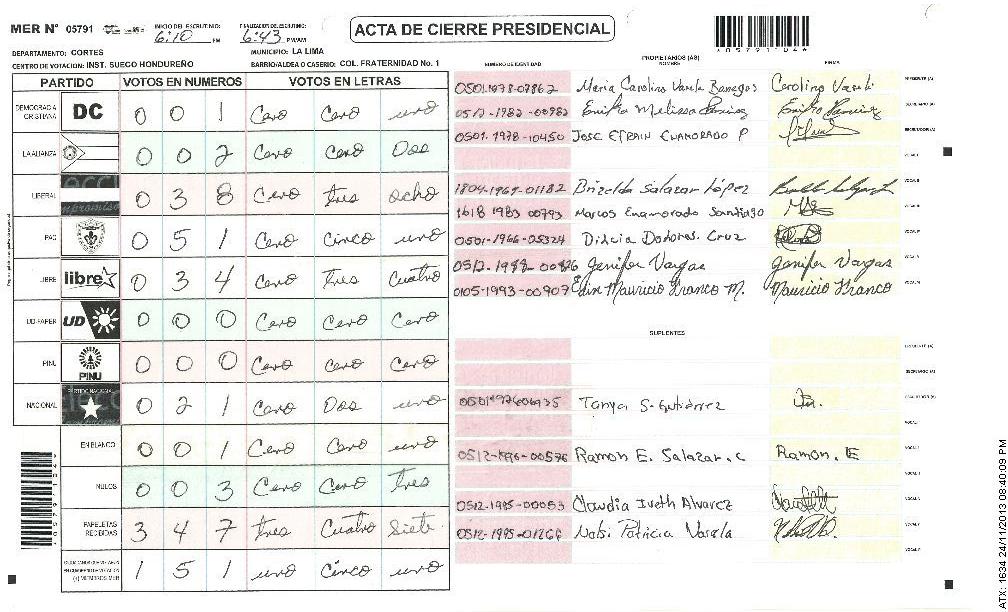 MER N° 05791 INICIO DEL ESCRUTINIO: 6:10 PM FINALIZACION DEL ESCRUTINIO: 6:43 PM/AM
ACTA DE CIERRE PRESIDENCIAL
DEPARTAMENTO: CORTES MUNICIPIO: LA LIMA
CENTRO DE VOTACION: INST. SUECO HONDUREÑO BARRIO/ALDEA O CASERIO: COL. FRATERNIDAD No. 1
PARTIDO VOTOS EN NUMEROS VOTOS EN LETRAS
DEMOCRACIA CRISTIANA DC 0 0 1 Cero Cero uno
LA ALIANZA 0 0 2 Cero Cero Dos
LIBERAL 0 3 8 Cero tres ocho
PAC 0 5 1 Cero Cinco uno
LIBRE libre 0 3 4 Cero tres Cuatro
UD-FAPER UD 0 0 0 Cero Cero Cero
PINU PINU 0 0 0 Cero Cero Cero
NACIONAL PARTIDO NACIONAL 0 2 1 Cero Dos uno
EN BLANCO 0 0 1 Cero Cero uno
NULOS 0 0 3 Cero Cero tres
PAPELETAS RECIBIDAS 3 4 7 tres Cuatro Siete
(+) MIEMBROS MER 1 5 1 uno Cinco uno
NUMERO DE IDENTIDAD PROPIETARIOS (AS) NOMBRE FIRMA
0501-1978-07862 Maria Carolina Varela Banegas Carolina Varela PRESIDENTE (A)
0512-1982-00982 Erika Melissa Ramirez Erika Ramirez SECRETARIO (A)
0501-1978-10450 JOSE EFRAIN ENAMORADO P ESCRUTADOR (A)
VOCAL I
1804-1969-01182 Brizelda Salazar López
1618 1983 00793 Marcos Enamorado Santiago
0501-1966-05324 Dilcia Dolores. Cruz
0512-1988-00826 Jenifer Vargas Jenifer Vargas
0105-1993-00907 Edin Mauricio Franco M. Mauricio Franco
SUPLENTES
PRESIDENTE (A)
SECRETARIO (A)
Tanya S. Gutiérrez ESCRUTADOR (A)
0512-1996-00576 Ramon E. Salazar. C Ramon. E
0512-1995-00053 Claudia Iveth Alvarez
0512-1995-01266 Patricia Varela
ATX: 1634 24/11/2013 08:40:09 PM